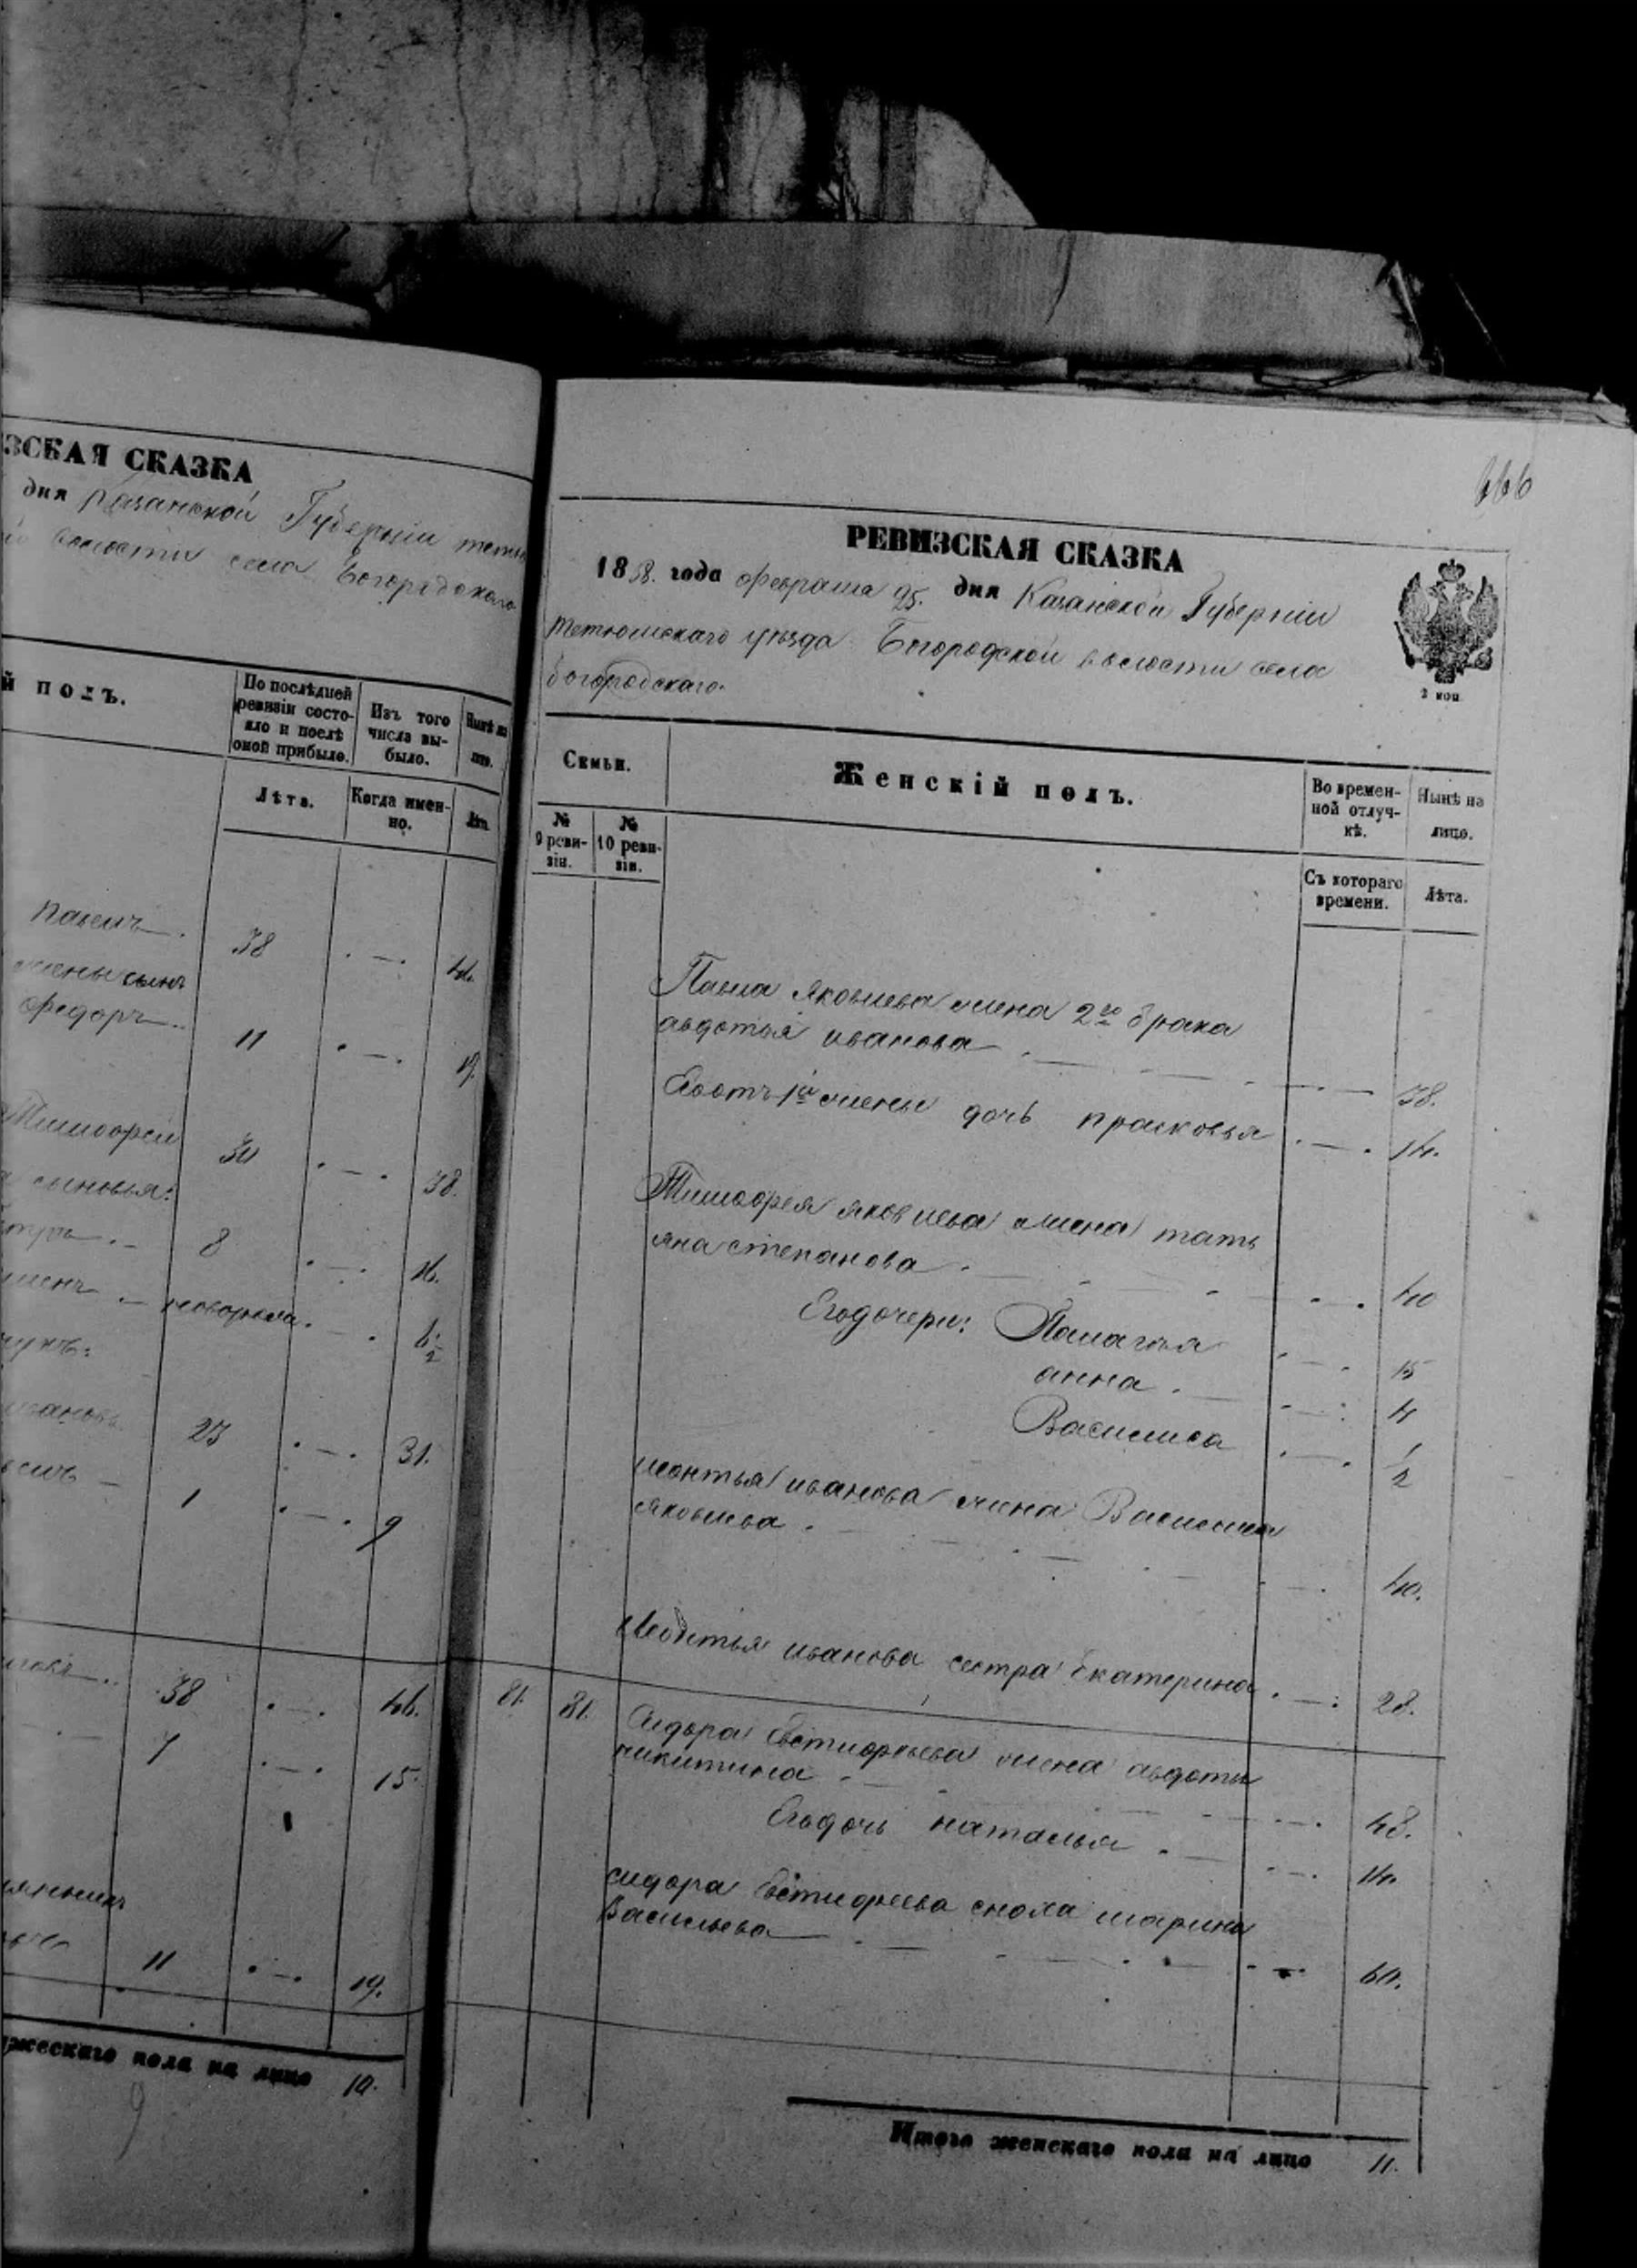 ЗСКАЯ СКАЗКА
дня Казанской Губерніи тетю
волости села Богородскаго
й полъ.
По послѣдней ревизіи состояло и послѣ оной прибыло.
Изъ того числа выбыло.
Нынѣ на лицо.
Лѣта.
Когда именно.
Лѣта.
Павелъ 38 46.
жены сынъ
Федоръ 11 19.
Тимофей 30 38.
сыновья:
8 16.
новорожд. 6/2
23 31.
1 9
38 46.
7 15.
11 19.
жескаго пола на лицо 10.
9
666
РЕВИЗСКАЯ СКАЗКА
1858. года февраля 25. дня Казанской Губерніи
тетюшскаго уѣзда Богородской волости села
Богородскаго.
2 коп
Семьи.
Женскій полъ.
Во временной отлучкѣ.
Нынѣ на лицо.
№ 9 ревизіи.
№ 10 ревизіи.
Съ котораго времени.
Лѣта.
Павла Яковлева жена 2го брака
авдотья иванова 38.
Его отъ 1й жены дочь прасковья 14.
Тимофея яковлева жена тать
яна степанова 40
Его дочери: Палагья 15
анна 4
Василиса 1/2
леонтья иванова жена Василиса
яковлева 40.
Леонтья иванова сестра Екатерина 28.
81. 81. Сидора Евстифеева жена авдотья
никитина 48.
Его дочь наталья 14.
сидора Евстифеева сноха марина
Васильева 60.
Итого женскаго пола на лицо 11.